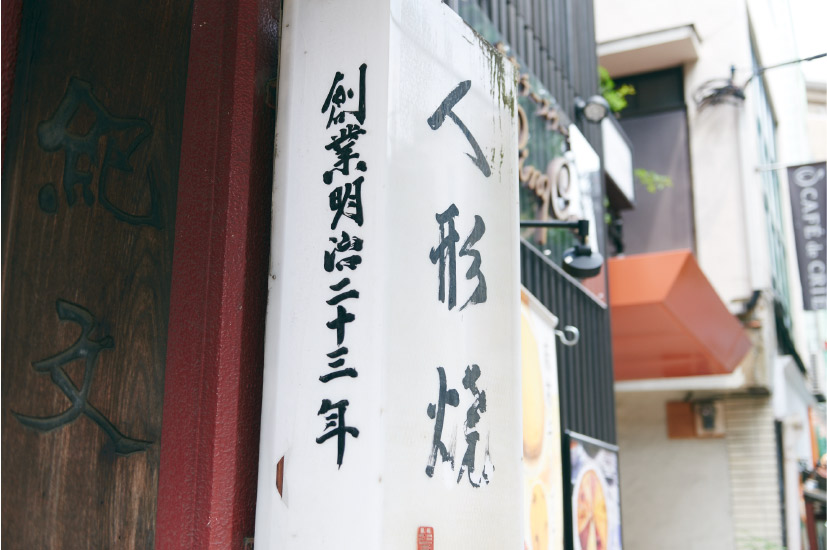 人形焼
創業明治二十三年
紀文
CAFÉ de CRIÉ